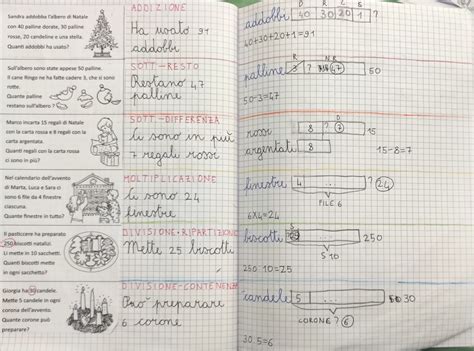 Sandra addobba l'albero di Natale
con 40 palline dorate, 30 palline
rosse, 20 candeline e una stella.
Quanti addobbi ha usato?
ADDIZIONE
Ha usato 91
addobbi
D R C S
addobbi 40 30 20 1 ?
40+30+20+1=91
Sull'albero sono state appese 50 palline.
Il cane Ringo ne ha fatte cadere 3, che si sono
rotte.
Quante palline
restano sull'albero?
SOTT-RESTO
Restano 47
palline
R N R
palline 3 ? 47 50
50-3=47
Marco incarta 15 regali di Natale
con la carta rossa e 8 regali con la
carta argentata.
Quanti regali con la carta rossa
ci sono in più?
SOTT-DIFFERENZA
Ci sono in più
7 regali rossi
rossi 8 ? 7 15
argentati 8
15-8=7
Nel calendario dell'avvento
di Marta, Luca e Sara ci
sono 6 file da 4 finestre
ciascuna.
Quante finestre in tutto?
MOLTIPLICAZIONE
Ci sono 24
finestre
finestre 4 ? 24
FILE 6
6x4=24
Il pasticcere ha preparato
250 biscotti natalizi.
Li mette in 10 sacchetti.
Quanti biscotti mette
in ogni sacchetto?
DIVISIONE-RIPARTIZIONE
Mette 25 biscotti
biscotti 250
S 10
250:10=25
Giorgia ha 30 candele.
Mette 5 candele in ogni
corona dell'avvento.
Quante corone può
preparare?
DIVISIONE-CONTENENZA
Può preparare
6 corone
candele 5 30
CORONE ? 6
30:5=6